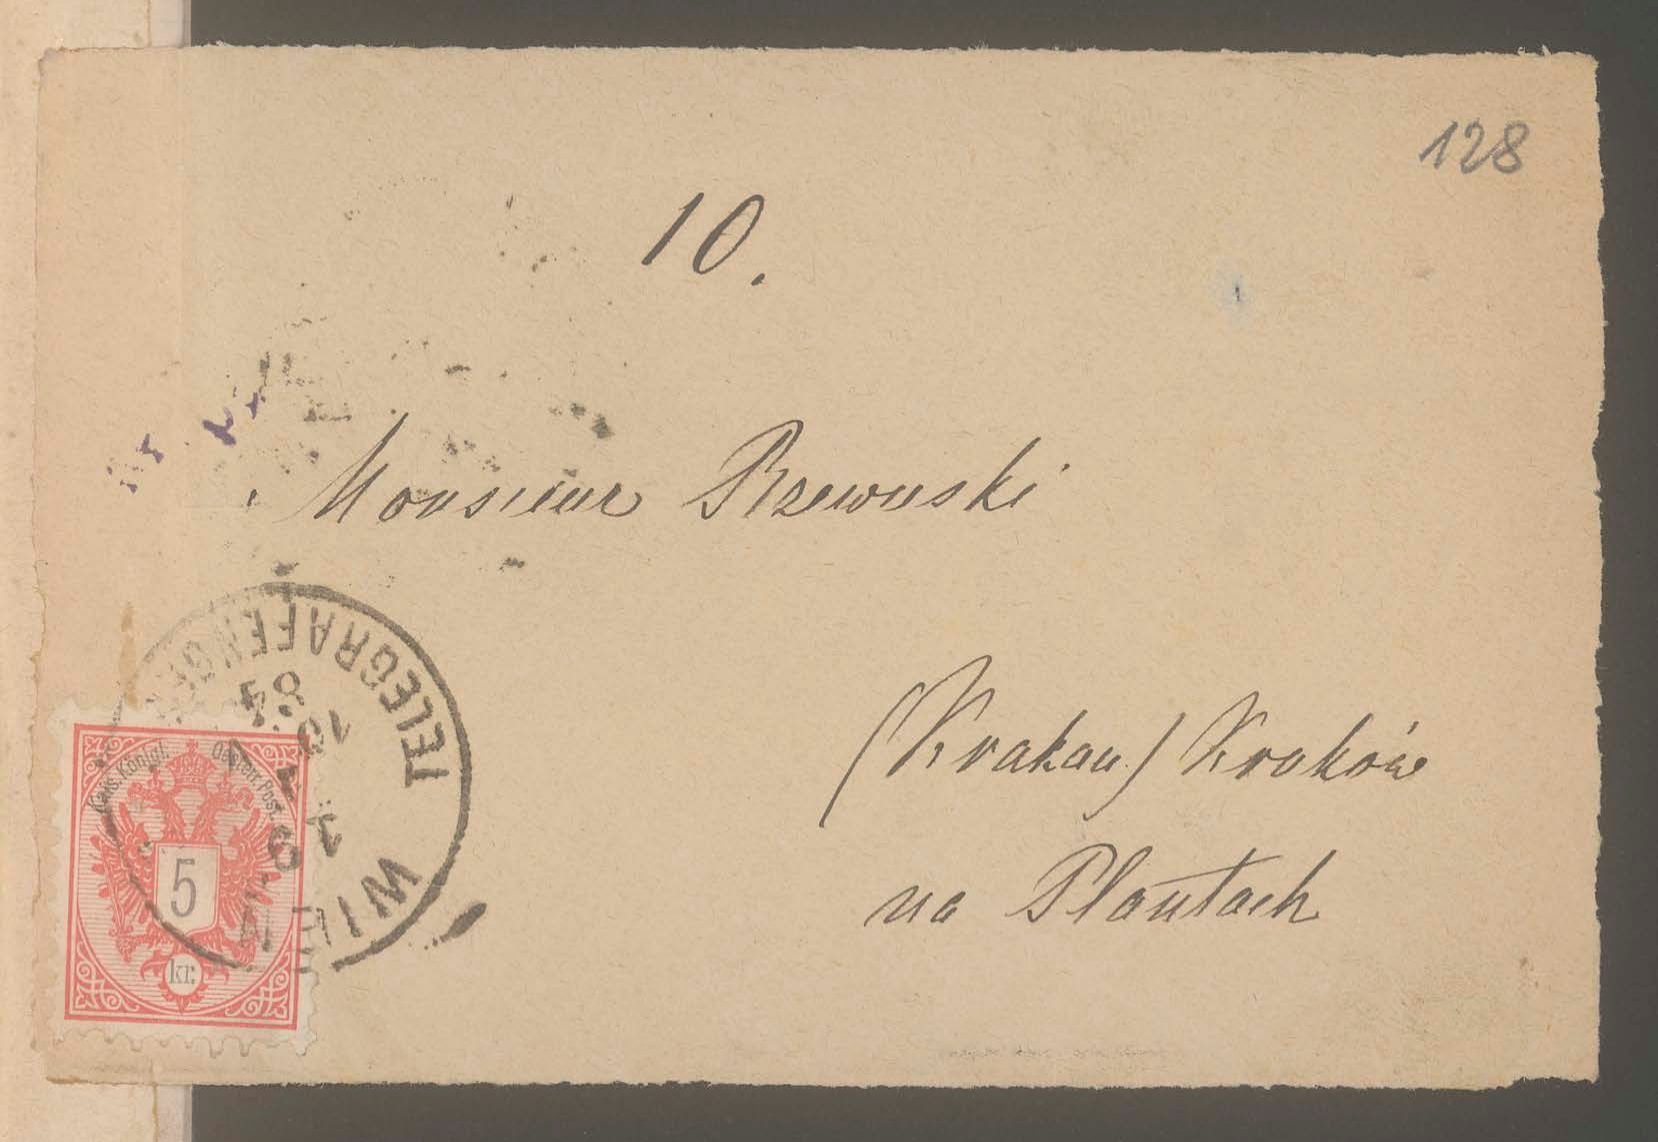 128
10.
Monsieur Rzewuski
(Krakau) Kraków
na Plantach
WIEN
TELEGRAFEN
19
84
Kais. Königl. Oesterr. Post.
5
kr.